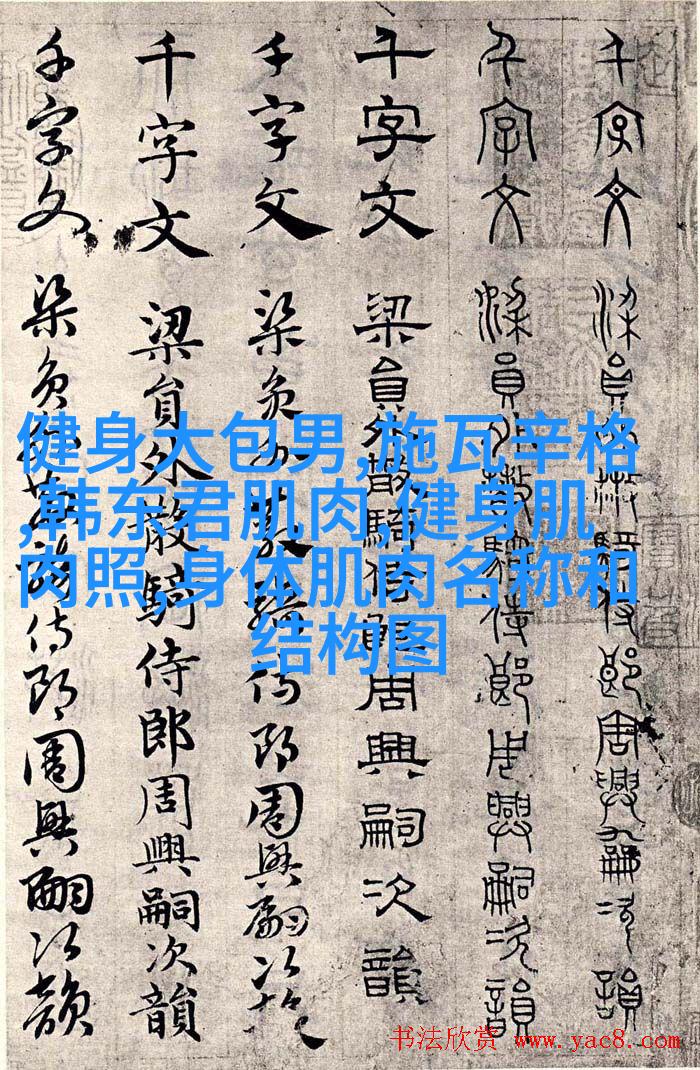 千字文 梁員外散騎侍郎周興嗣次韻
千字文 梁員外散騎侍郎周興嗣次韻
千字文 梁員外散騎侍郎周興嗣次韻
千字文 梁員外散騎侍郎周興嗣次韻
千字文 梁員外散騎侍郎周興嗣次韻
千字文 梁員外散騎侍郎周興嗣次韻
健身大包男,施瓦辛格
,韩东君肌肉,健身肌
肉照,身体肌肉名称和
结构图
书法欣赏 www.yac8.com